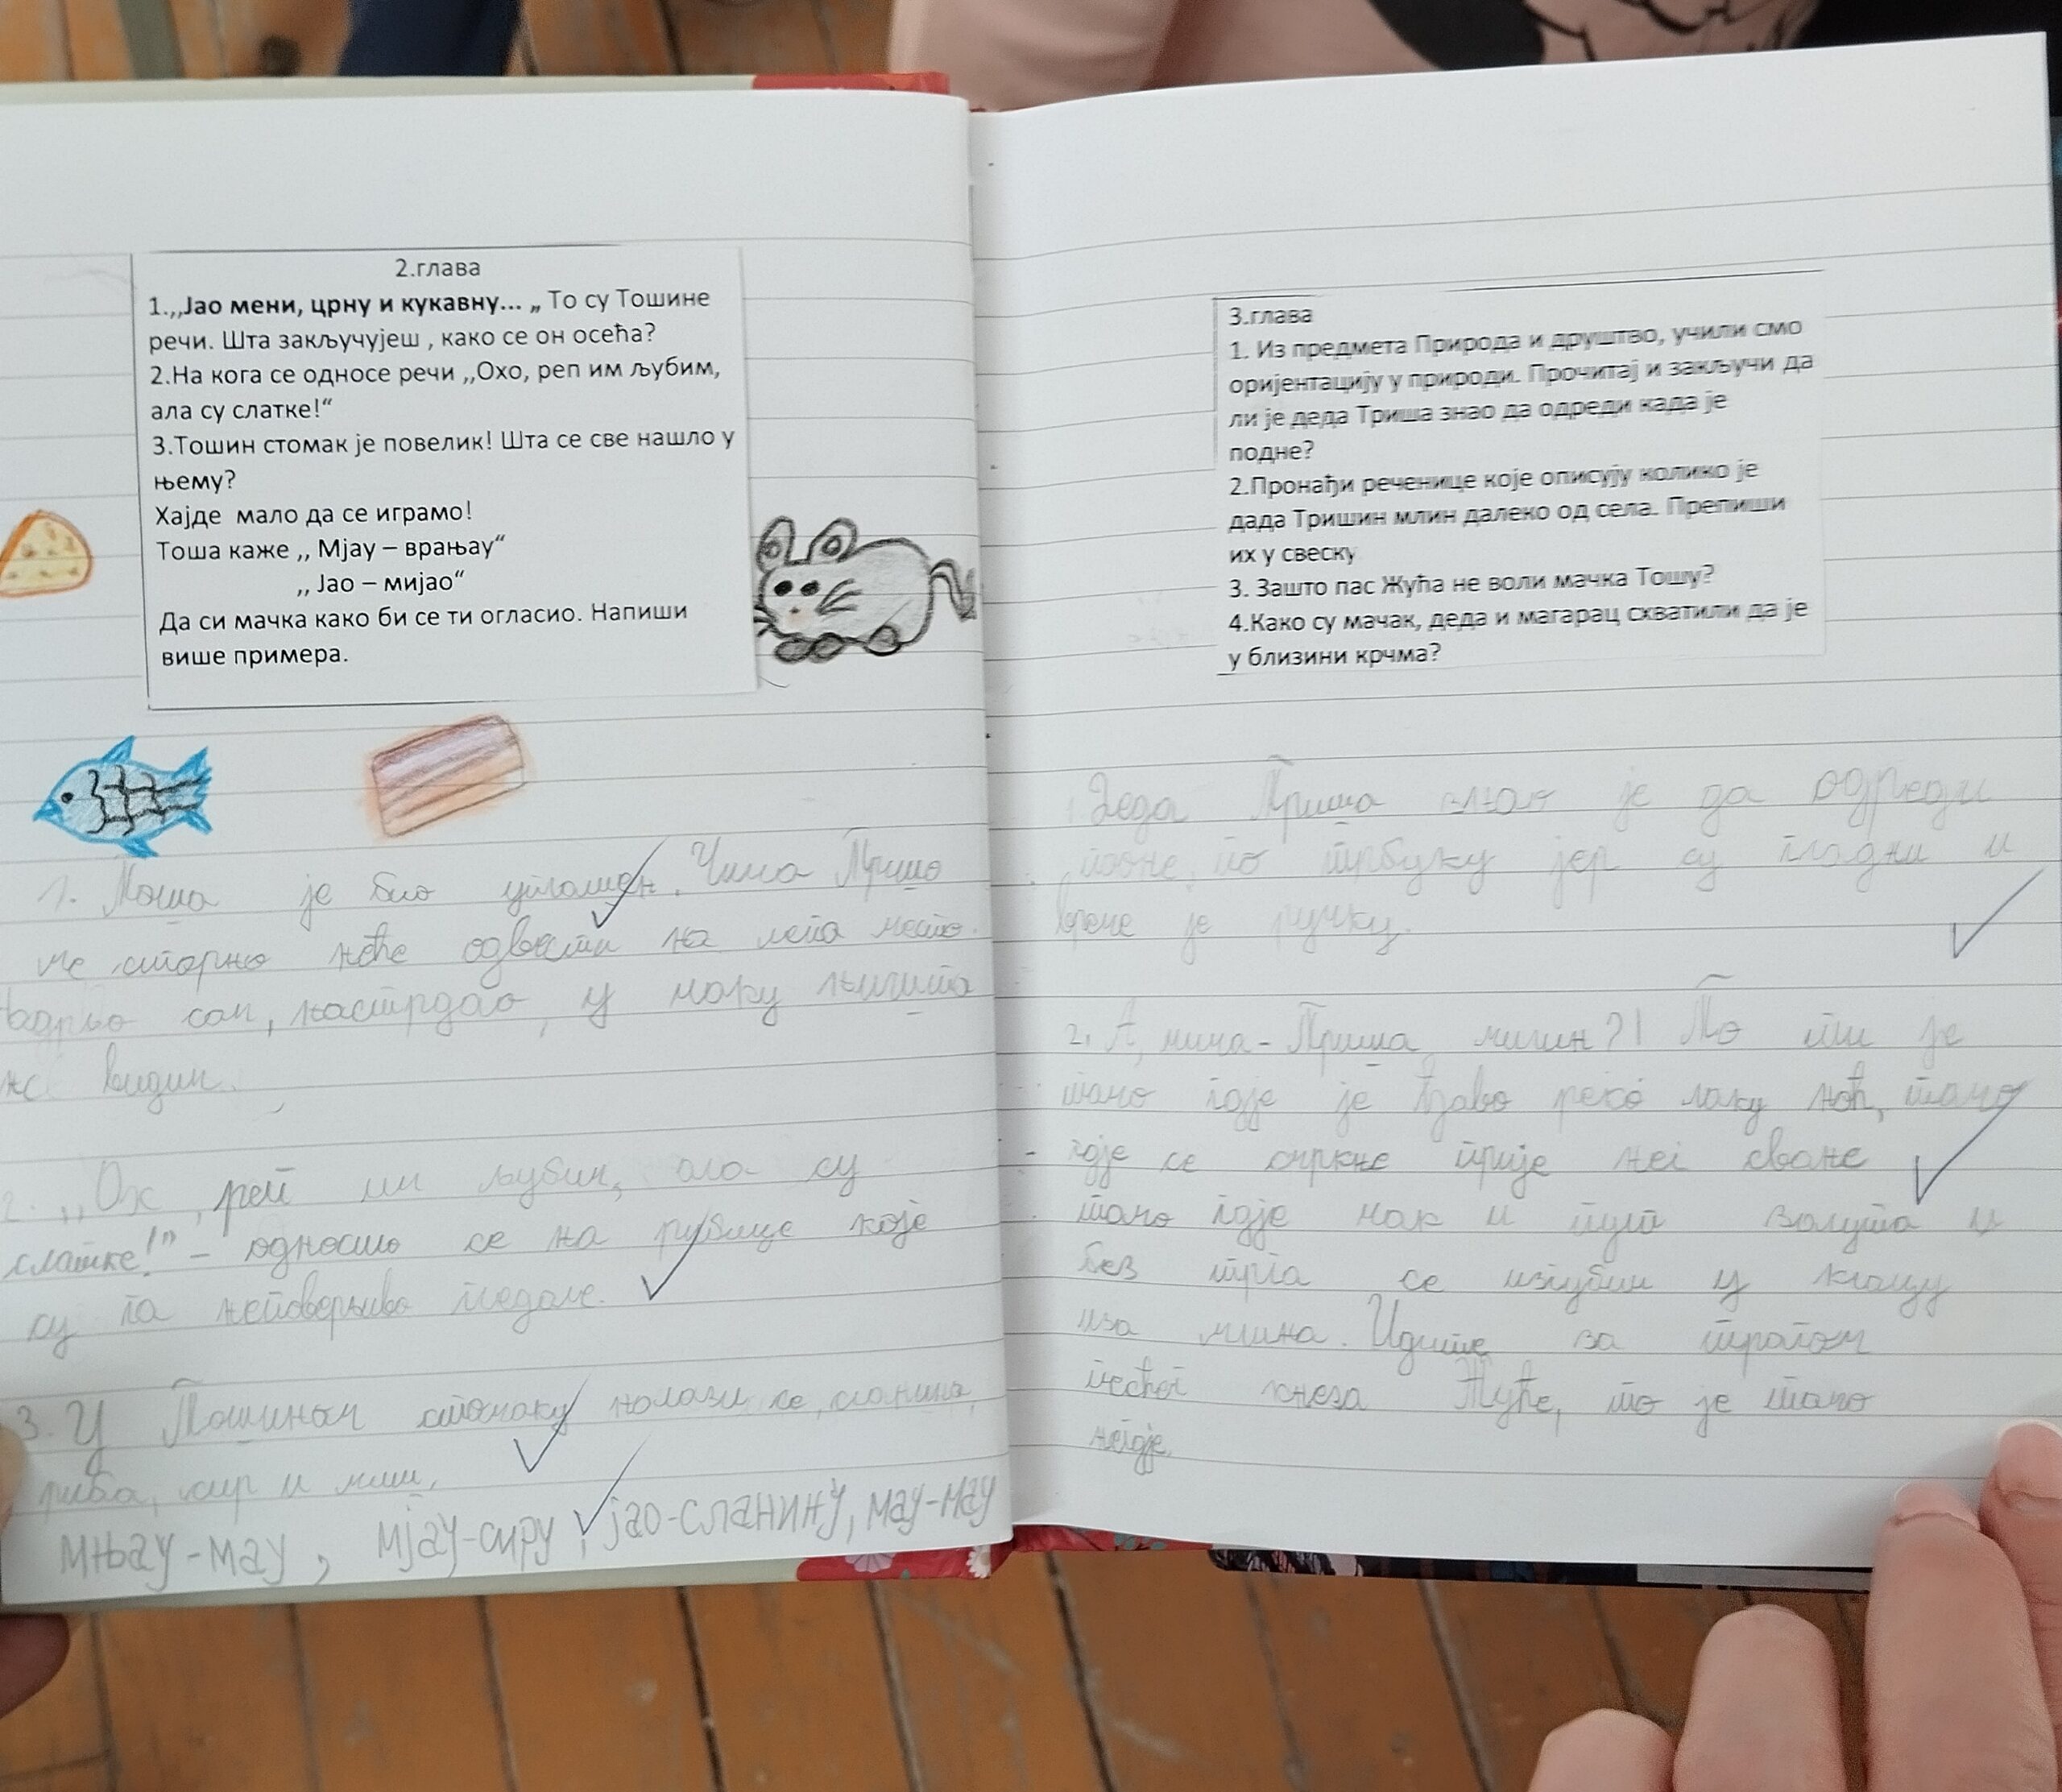 2.глава
1.,,Јао мени, црну и кукавну... „ То су Тошине
речи. Шта закључујеш , како се он осећа?
2.На кога се односе речи ,,Охо, реп им љубим,
ала су слатке!“
3.Тошин стомак је повелик! Шта се све нашло у
њему?
Хајде мало да се играмо!
Тоша каже ,, Мјау – врањау“
,, Јао – мијао“
Да си мачка како би се ти огласио. Напиши
више примера.
1. Тоша је био уплашен. Чича Триша
ме стармо неће одвести на лепа место.
сам, настрдао, у маку
не видим.
2. ,,Ох, реп им љубим, ала су
слатке!” – односно се на рибице које
су га неповерљиво гледале.
3. У Тошином стомаку налази се, сланина,
риба, сир и миш.
мњау-мау, мјау-сиру, јао-сланину, мау-мау
3.глава
1. Из предмета Природа и друштво, учили смо
оријентацију у природи. Прочитај и закључи да
ли је деда Триша знао да одреди када је
подне?
2.Пронађи реченице које описују колико је
дада Тришин млин далеко од села. Препиши
их у свеску
3. Зашто пас Жућа не воли мачка Тошу?
4.Како су мачак, деда и магарац схватили да је
у близини крчма?
1. Деда Триша знао је да одреди
подне, по трбуху јер су гладни и
време је ручку.
2. А, чича-Триша, млин?! То ти је
тамо гдје је ђаво реко лаку ноћ, тамо
гдје се смркне прије нег сване
тамо гдје чак и пут залута и
без трга се изгуби у кланцу
иза млина. Идите за трагом
пећег кнеза Жуће, то је тамо
негдје.